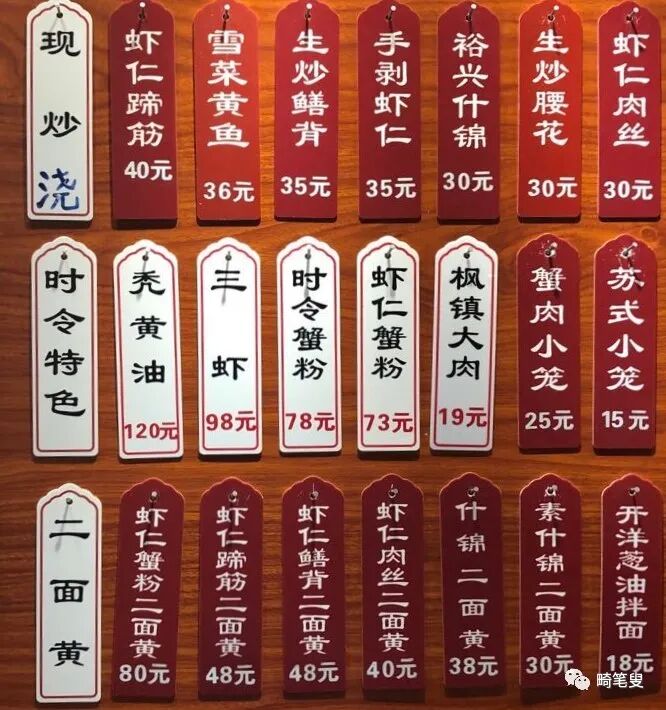 现炒浇
虾仁蹄筋
40元
雪菜黄鱼
36元
生炒鳝背
35元
手剥虾仁
35元
裕兴什锦
30元
生炒腰花
30元
虾仁肉丝
30元
时令特色
秃黄油
120元
三虾
98元
时令蟹粉
78元
虾仁蟹粉
73元
枫镇大肉
19元
蟹肉小笼
25元
苏式小笼
15元
二面黄
虾仁蟹粉二面黄
80元
虾仁蹄筋二面黄
48元
虾仁鳝背二面黄
48元
虾仁肉丝二面黄
40元
什锦二面黄
38元
素什锦二面黄
30元
开洋葱油拌面
18元
畸笔叟